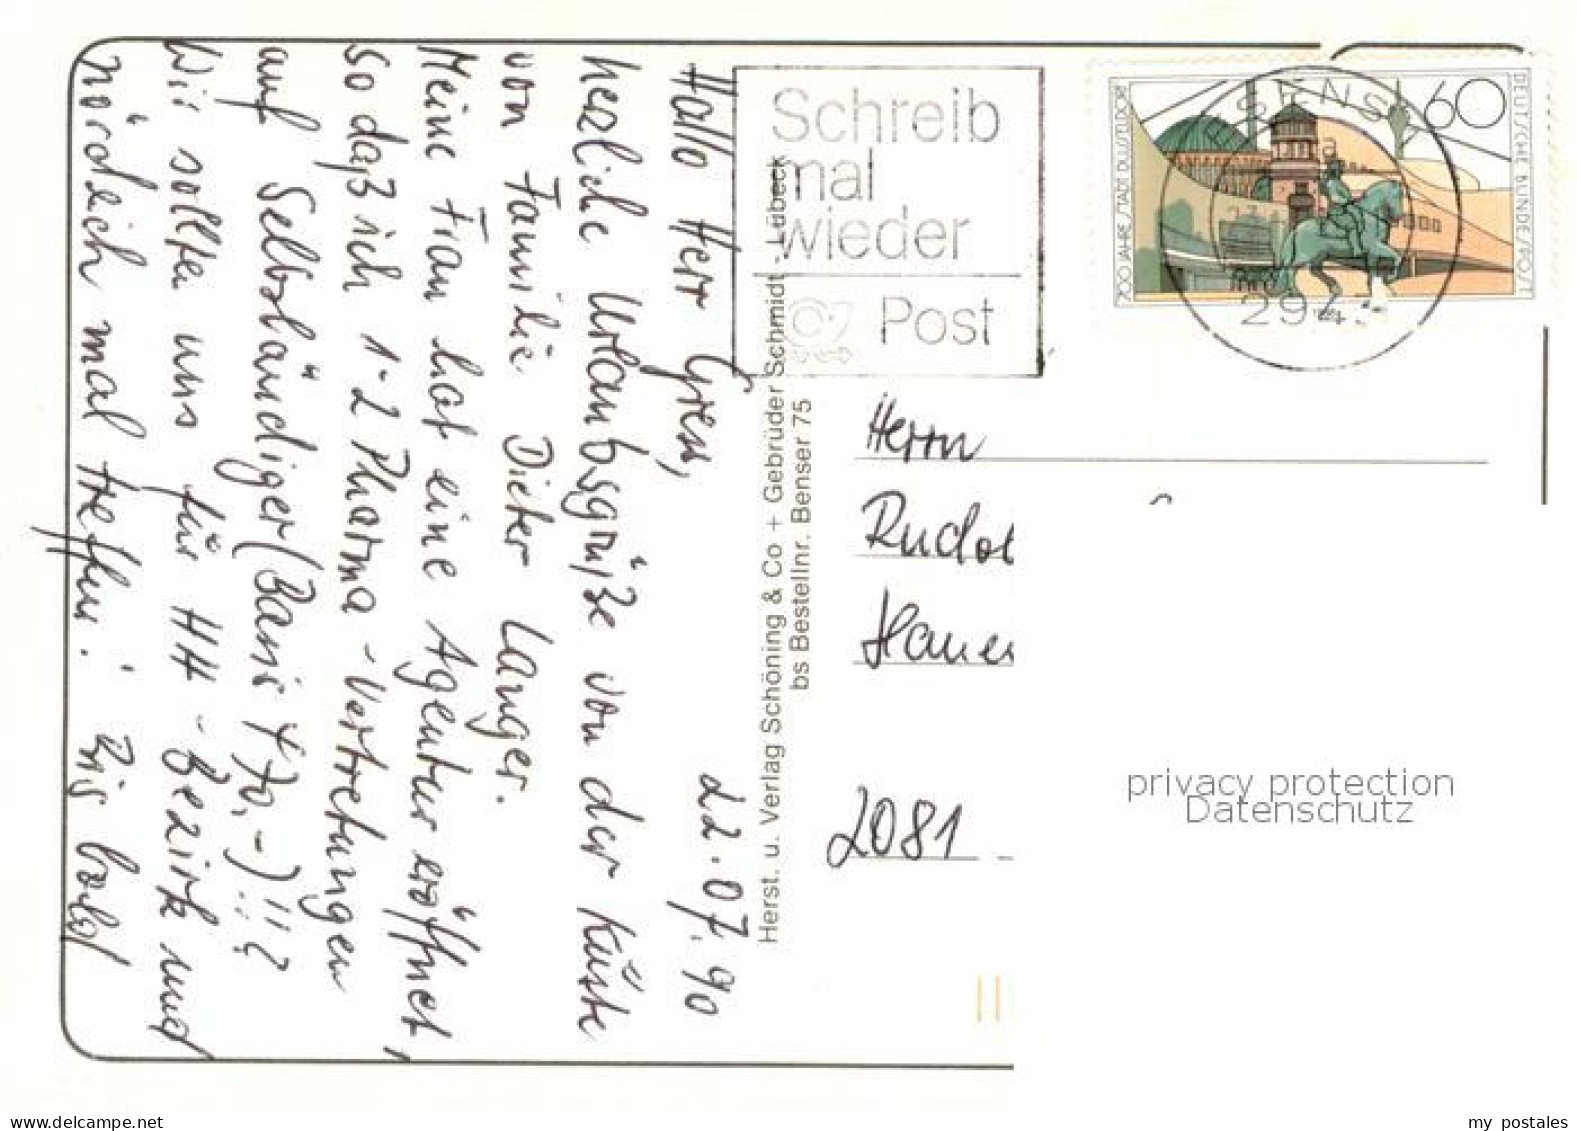 Hallo Herr Gress,
22.07.90
herzliche Urlaubsgrüße von der Küste
von Familie Dieter Langer.
Meine Frau hat eine Agentur eröffnet,
so daß ich 1-2 Pharma-Vertretungen
auf Selbständiger (Basis 470,-)!!?
Wir sollten uns für HH-Bezirk und
nördlich mal treffen! Bis bald
Herst. u. Verlag Schöning & Co + Gebrüder Schmidt - Lübeck
bs Bestellnr. Benser 75
Schreib
mal
wieder
Post
700 JAHRE STADT DÜSSELDORF
60
DEUTSCHE BUNDESPOST
SENS
Herrn
Rudol
2081
privacy protection
Datenschutz
www.delcampe.net
my postales